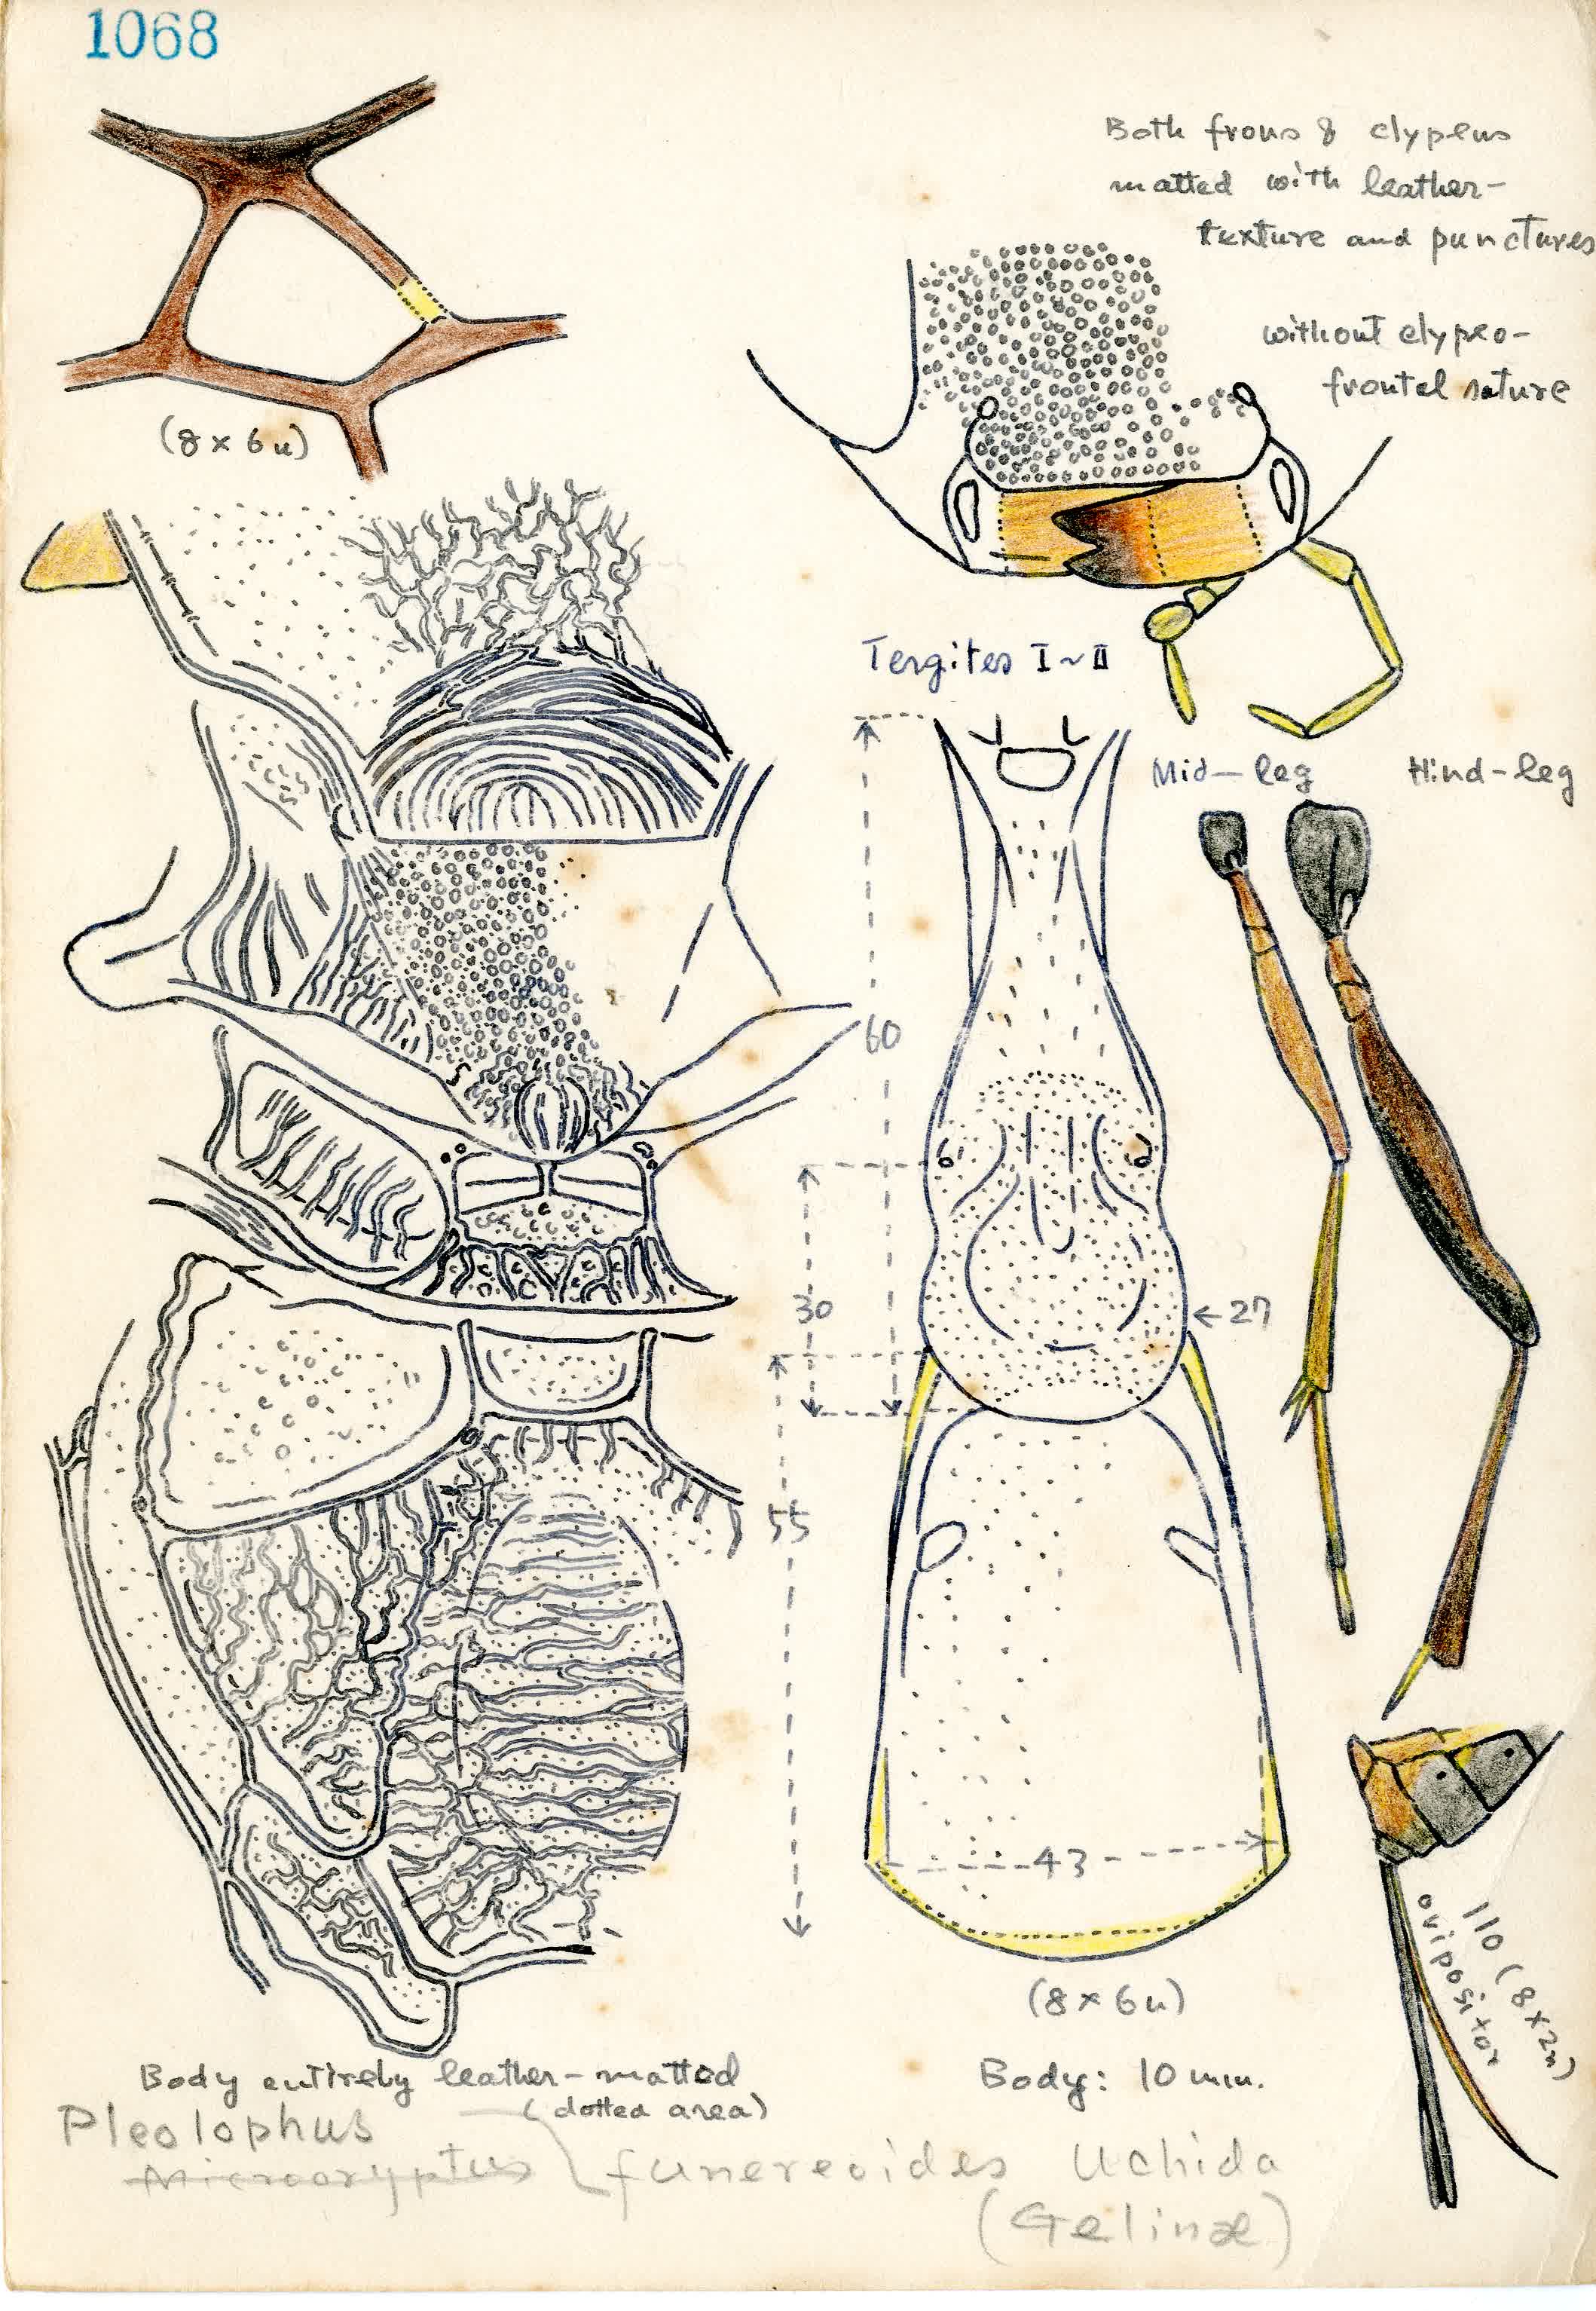 1068
Both frons & clypeus
matted with leather-
texture and punctures
without clypeo-
frontal suture
(8 x 6u)
Tergites I ~ II
Mid-leg
Hind-leg
60
30
←27
55
43
(8 x 6u)
110 (8x2u)
ovipositor
Body entirely leather-matted
(dotted area)
Body: 10 mm.
Pleolophus
Microcryptus
funereoides Uchida
(Gelinæ)